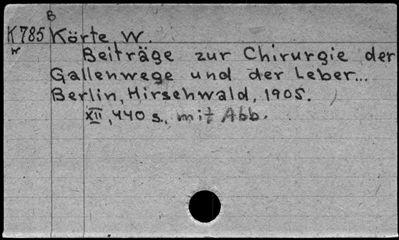 B
K785 Körte, W.
w Beiträge zur Chirurgie der
Gallenwege und der Leber...
Berlin, Hirschwald, 1905.
XII, 440 s., mit Abb.